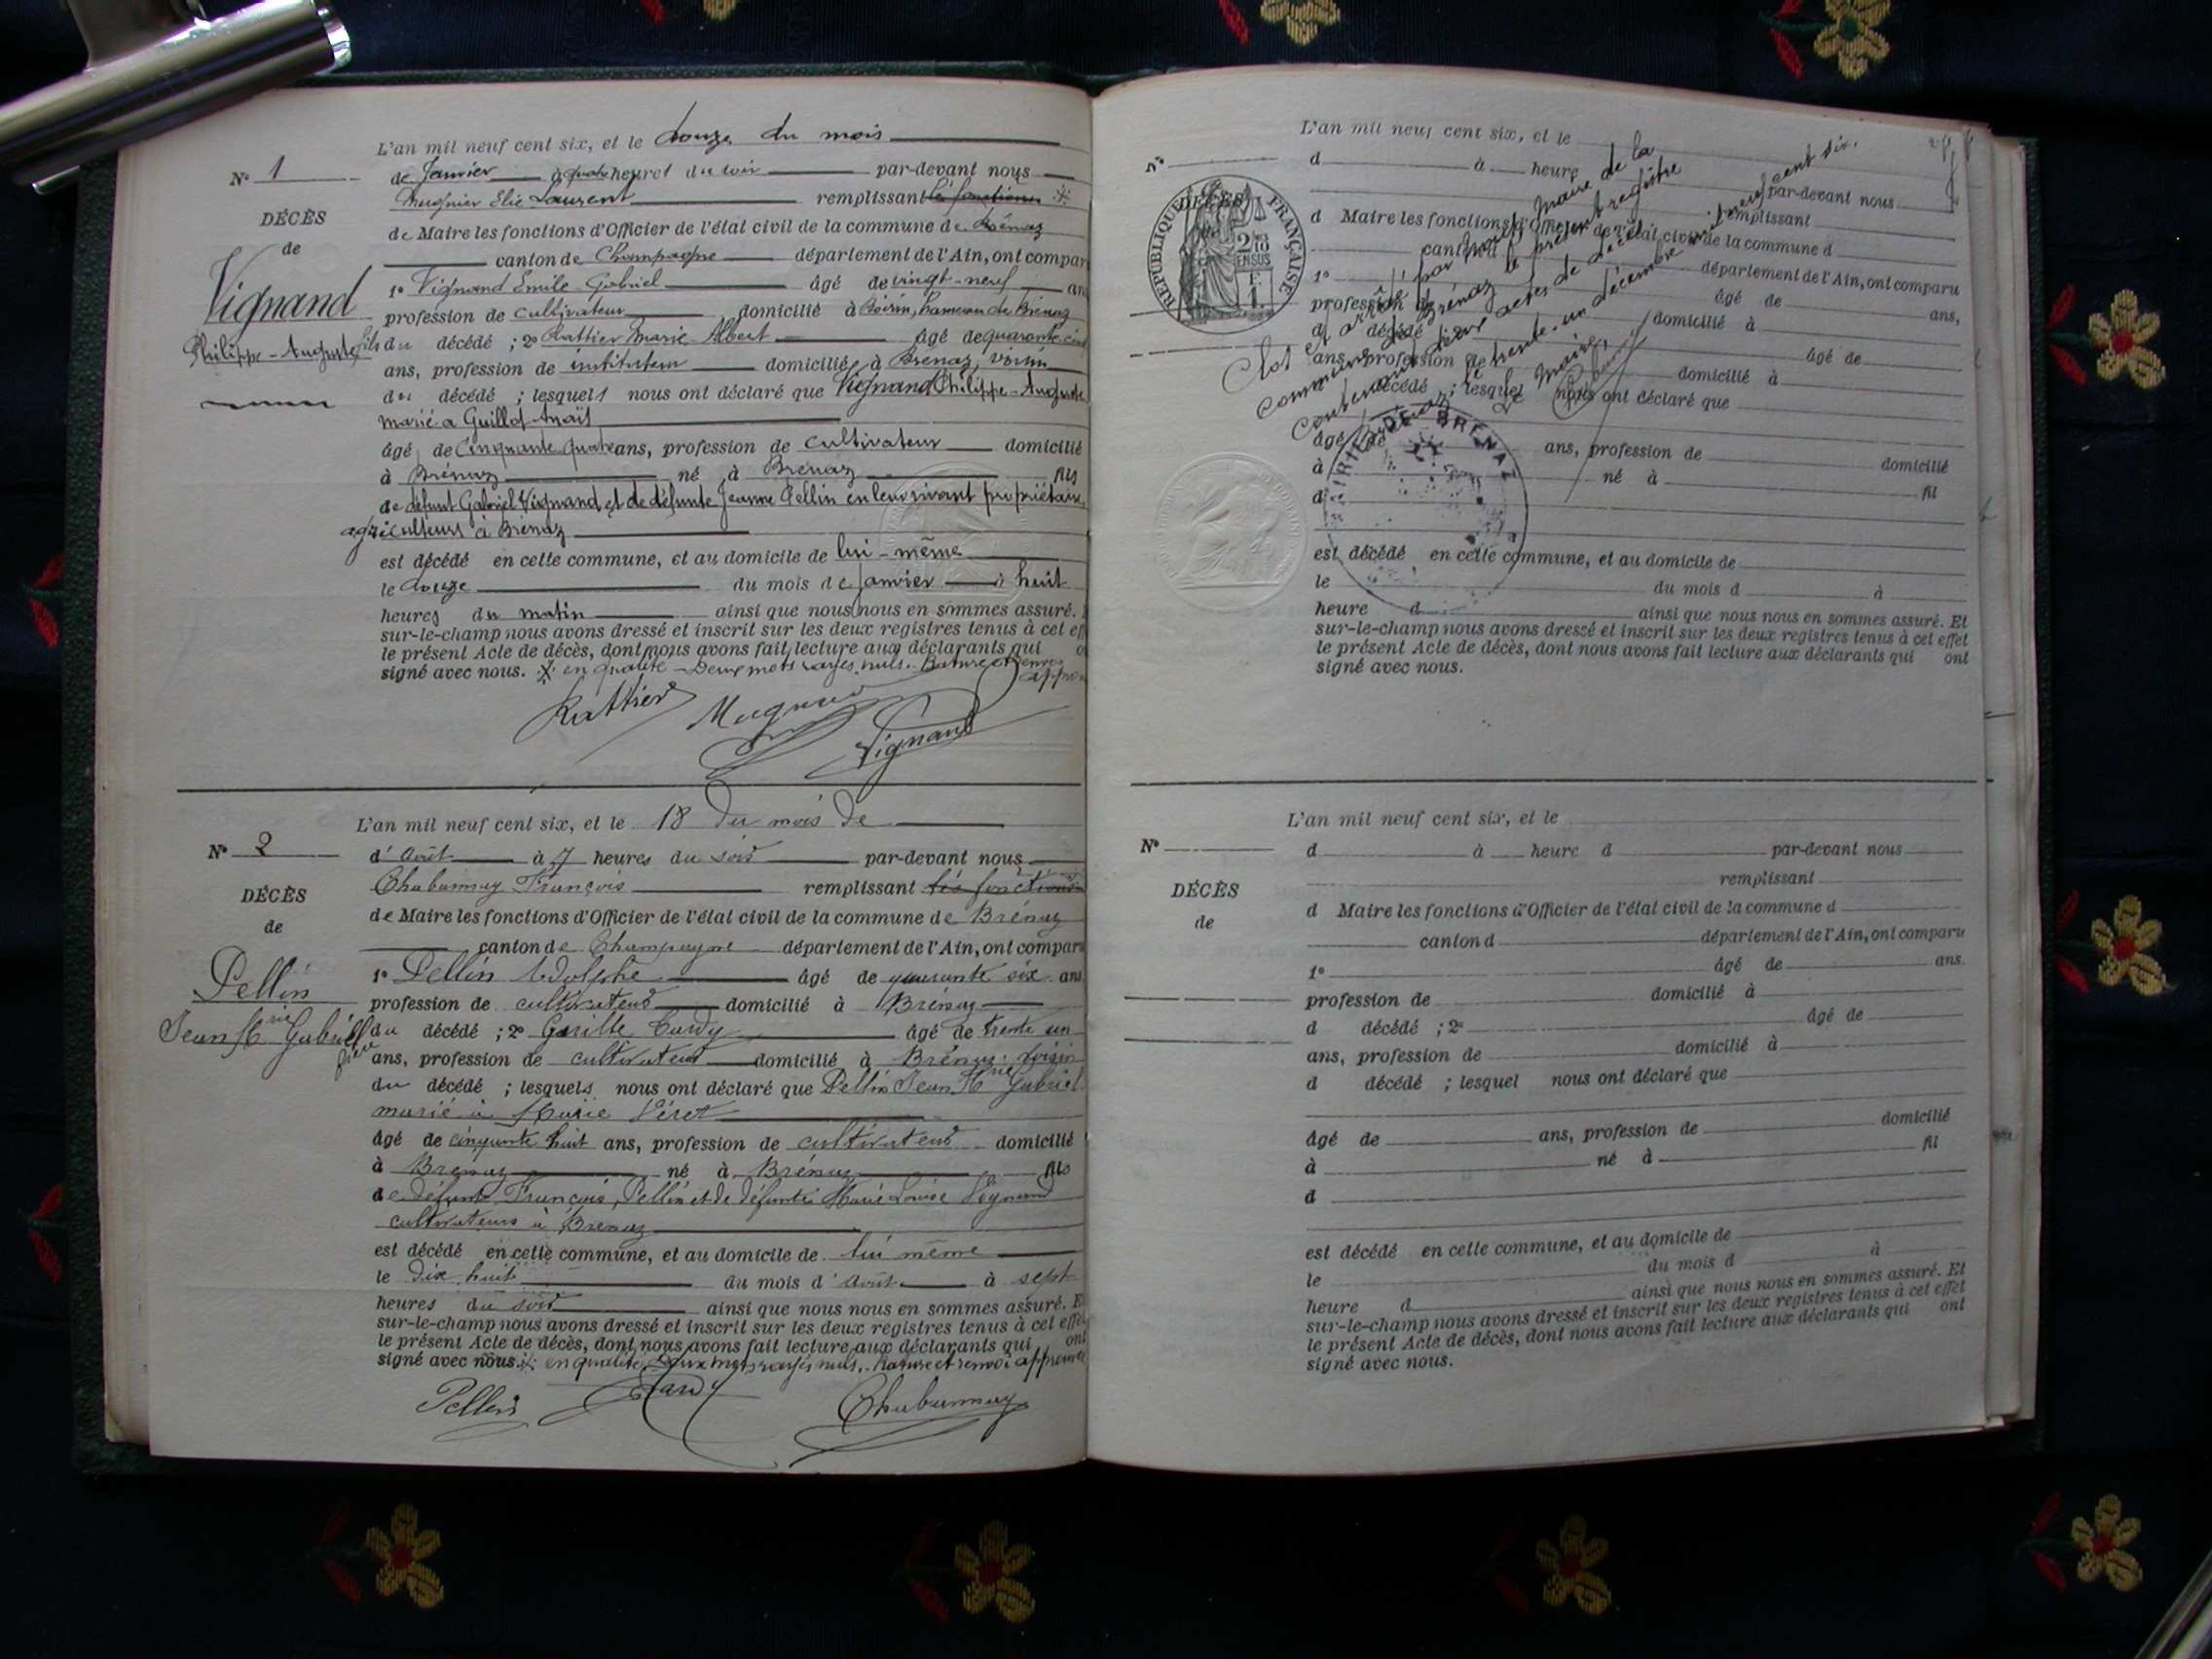 L'an mil neuf cent six, et le douze du mois
N° 1
de Janvier à quatre heures du soir par-devant nous
Mugnier Elie Laurent remplissant les fonctions
DÉCÈS
de Maire les fonctions d'Officier de l'état civil de la commune de Brénaz
de
canton de Champagne département de l'Ain, ont compar
Vignand
1° Vignand Emile Gabriel âgé de vingt-neuf an
profession de cultivateur domicilié à hameau de Brénaz
Philippe-Auguste
fils du décédé ; 2° Rattier Marie Albert âgé de quarante cinq
ans, profession de instituteur domicilié à Brenaz, voisin
du décédé ; lesquels nous ont déclaré que Vignand Philippe-Auguste
marié à Guillot Anaïs
âgé de cinquante quatre ans, profession de cultivateur domicilié
à Brénaz né à Brénaz fils
de défunt Gabriel Vignand et de défunte Jeanne Pellin en leur vivant propriétaires
agriculteurs à Brénaz
est décédé en cette commune, et au domicile de lui-même
le douze du mois de Janvier à huit
heures du matin ainsi que nous nous en sommes assuré. E
sur-le-champ nous avons dressé et inscrit sur les deux registres tenus à cet eff
le présent Acte de décès, dont nous avons fait lecture aux déclarants qui o
signé avec nous. en qualité - Deux mots rayés nuls. Rature et renvoi appro
Rattier Mugnier
Vignand
L'an mil neuf cent six, et le 18 du mois de
N° 2
d'Août à 7 heures du soir par-devant nous
Chabannay François remplissant les fonctions
DÉCÈS
de Maire les fonctions d'Officier de l'état civil de la commune de Brénaz
de
canton de Champagne département de l'Ain, ont comparu
Pellin
1° Pellin Adolphe âgé de quarante six ans
profession de cultivateur domicilié à Brénaz
Jean Mrie Gabriel
frère du décédé ; 2° Tardy âgé de trente un
ans, profession de cultivateur domicilié à Brénaz voisin
du décédé ; lesquels nous ont déclaré que Pellin Jean Mrie Gabriel
marié à Marie Péret
âgé de cinquante huit ans, profession de cultivateur domicilié
à Brénaz né à Brénaz fils
de défunt François Pellin et de défunte Marie Louise Vignand
cultivateurs à Brénaz
est décédé en cette commune, et au domicile de lui même
le dix huit du mois d'Août à sept
heures du soir ainsi que nous nous en sommes assuré. E
sur-le-champ nous avons dressé et inscrit sur les deux registres tenus à cet effet
le présent Acte de décès, dont nous avons fait lecture aux déclarants qui ont
signé avec nous. en qualité, Deux mots rayés nuls. Rature et renvoi approuvé
Pellin Tardy Chabannay
L'an mil neuf cent six, et le
N°
d à heure par-devant nous
DÉCÈS
remplissant
RÉPUBLIQUE FRANÇAISE
d Maire les fonctions d'Officier de l'état civil de la commune d
canton d département de l'Ain, ont comparu
1° âgé de ans,
profession de domicilié à
d décédé âgé de
ans, profession de domicilié à
décédé ; lesquel nous ont déclaré que
Clos et arrêté par nous, maire de la
commune de Brénaz le présent registre
contenant deux actes de décès
Brénaz, le trente-un décembre mil neuf cent six.
Le Maire,
Chabannay
MAIRIE DE BRENAZ
âgé de ans, profession de domicilié
à né à fil
d
est décédé en cette commune, et au domicile de
le du mois d à
heure d ainsi que nous nous en sommes assuré. Et
sur-le-champ nous avons dressé et inscrit sur les deux registres tenus à cet effet
le présent Acte de décès, dont nous avons fait lecture aux déclarants qui ont
signé avec nous.
L'an mil neuf cent six, et le
N°
d à heure d par-devant nous
remplissant
DÉCÈS
d Maire les fonctions d'Officier de l'état civil de la commune d
de
canton d département de l'Ain, ont comparu
1° âgé de ans.
profession de domicilié à
d décédé ; 2° âgé de
ans, profession de domicilié à
d décédé ; lesquel nous ont déclaré que
âgé de ans, profession de domicilié
à né à fil
d
est décédé en cette commune, et au domicile de
le du mois d à
heure d ainsi que nous nous en sommes assuré. Et
sur-le-champ nous avons dressé et inscrit sur les deux registres tenus à cet effet
le présent Acte de décès, dont nous avons fait lecture aux déclarants qui ont
signé avec nous.